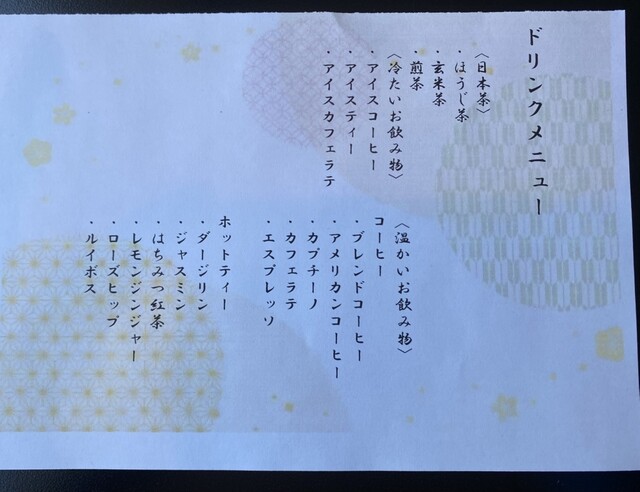 ドリンクメニュー
〈日本茶〉
・ほうじ茶
・玄米茶
・煎茶
〈冷たいお飲み物〉
・アイスコーヒー
・アイスティー
・アイスカフェラテ
〈温かいお飲み物〉
コーヒー
・ブレンドコーヒー
・アメリカンコーヒー
・カプチーノ
・カフェラテ
・エスプレッソ
ホットティー
・ダージリン
・ジャスミン
・はちみつ紅茶
・レモンジンジャー
・ローズヒップ
・ルイボス